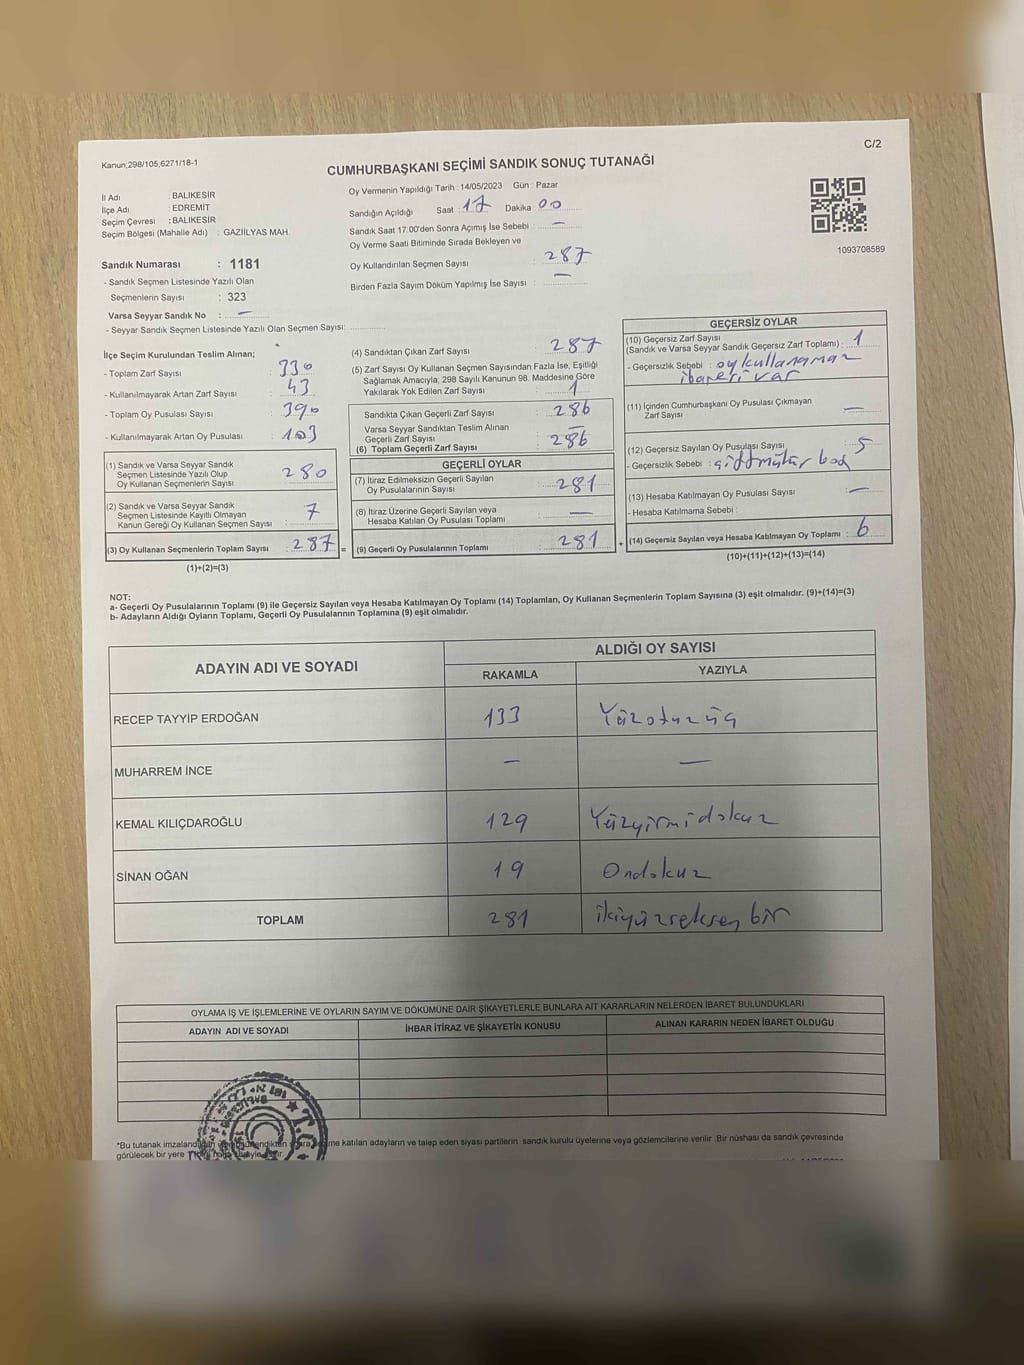 Kanun;298/105,6271/18-1
C/2
CUMHURBAŞKANI SEÇİMİ SANDIK SONUÇ TUTANAĞI
İl Adı : BALIKESİR
İlçe Adı : EDREMİT
Seçim Çevresi : BALIKESİR
Seçim Bölgesi (Mahalle Adı) : GAZİİLYAS MAH.
Oy Vermenin Yapıldığı Tarih : 14/05/2023 Gün : Pazar
Sandığın Açıldığı Saat : 17 Dakika : 00
Sandık Saat 17:00'den Sonra Açımış İse Sebebi : —
Oy Verme Saati Bitiminde Sırada Bekleyen ve
Oy Kullandırılan Seçmen Sayısı : 287
Birden Fazla Sayım Döküm Yapılmış İse Sayısı : —
1093708589
Sandık Numarası : 1181
- Sandık Seçmen Listesinde Yazılı Olan
Seçmenlerin Sayısı : 323
Varsa Seyyar Sandık No : —
- Seyyar Sandık Seçmen Listesinde Yazılı Olan Seçmen Sayısı:
İlçe Seçim Kurulundan Teslim Alınan;
- Toplam Zarf Sayısı : 330
- Kullanılmayarak Artan Zarf Sayısı : 43
- Toplam Oy Pusulası Sayısı : 390
- Kullanılmayarak Artan Oy Pusulası : 103
(1) Sandık ve Varsa Seyyar Sandık
Seçmen Listesinde Yazılı Olup
Oy Kullanan Seçmenlerin Sayısı : 280
(2) Sandık ve Varsa Seyyar Sandık
Seçmen Listesinde Kayıtlı Olmayan
Kanun Gereği Oy Kullanan Seçmen Sayısı : 7
(3) Oy Kullanan Seçmenlerin Toplam Sayısı : 287 =
(1)+(2)=(3)
(4) Sandıktan Çıkan Zarf Sayısı : 287
(5) Zarf Sayısı Oy Kullanan Seçmen Sayısından Fazla İse, Eşitliği
Sağlamak Amacıyla, 298 Sayılı Kanunun 98. Maddesine Göre
Yakılarak Yok Edilen Zarf Sayısı : 1
Sandıkta Çıkan Geçerli Zarf Sayısı : 286
Varsa Seyyar Sandıktan Teslim Alınan
Geçerli Zarf Sayısı : —
(6) Toplam Geçerli Zarf Sayısı : 286
GEÇERLİ OYLAR
(7) İtiraz Edilmeksizin Geçerli Sayılan
Oy Pusulalarının Sayısı : 281
(8) İtiraz Üzerine Geçerli Sayılan veya
Hesaba Katılan Oy Pusulası Toplamı : —
(9) Geçerli Oy Pusulalarının Toplamı : 281 +
GEÇERSİZ OYLAR
(10) Geçersiz Zarf Sayısı
(Sandık ve Varsa Seyyar Sandık Geçersiz Zarf Toplamı) : 1
- Geçersizlik Sebebi : oy kullanamaz
ibaresi var
(11) İçinden Cumhurbaşkanı Oy Pusulası Çıkmayan
Zarf Sayısı : —
(12) Geçersiz Sayılan Oy Pusulası Sayısı : 5
- Geçersizlik Sebebi : çift mühür
(13) Hesaba Katılmayan Oy Pusulası Sayısı : —
- Hesaba Katılmama Sebebi :
(14) Geçersiz Sayılan veya Hesaba Katılmayan Oy Toplamı : 6
(10)+(11)+(12)+(13)=(14)
NOT:
a- Geçerli Oy Pusulalarının Toplamı (9) ile Geçersiz Sayılan veya Hesaba Katılmayan Oy Toplamı (14) Toplamları, Oy Kullanan Seçmenlerin Toplam Sayısına (3) eşit olmalıdır. (9)+(14)=(3)
b- Adayların Aldığı Oyların Toplamı, Geçerli Oy Pusulalarının Toplamına (9) eşit olmalıdır.
ADAYIN ADI VE SOYADI
ALDIĞI OY SAYISI
RAKAMLA YAZIYLA
RECEP TAYYİP ERDOĞAN 133 Yüzotuzüç
MUHARREM İNCE — —
KEMAL KILIÇDAROĞLU 129 Yüzyirmidokuz
SİNAN OĞAN 19 Ondokuz
TOPLAM 281 ikiyüzseksen bir
OYLAMA İŞ VE İŞLEMLERİNE VE OYLARIN SAYIM VE DÖKÜMÜNE DAİR ŞİKAYETLERLE BUNLARA AİT KARARLARIN NELERDEN İBARET BULUNDUKLARI
ADAYIN ADI VE SOYADI İHBAR İTİRAZ VE ŞİKAYETİN KONUSU ALINAN KARARIN NEDEN İBARET OLDUĞU
*Bu tutanak katılan adayların ve talep eden siyasi partilerin sandık kurulu üyelerine veya gözlemcilerine verilir. Bir nüshası da sandık çevresinde
görülecek bir yere